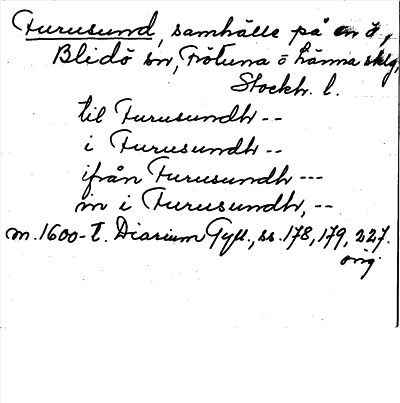 Furusund, samhälle på en ö,
Blidö sn, Frötuna o Länna sklg,
Stockh. l.
til Furusundh --
i Furusundh --
ifrån Furusundh ---
in i Furusundh, --
m. 1600-t. Diarium Gyll., ss. 178, 179, 227.
orig.